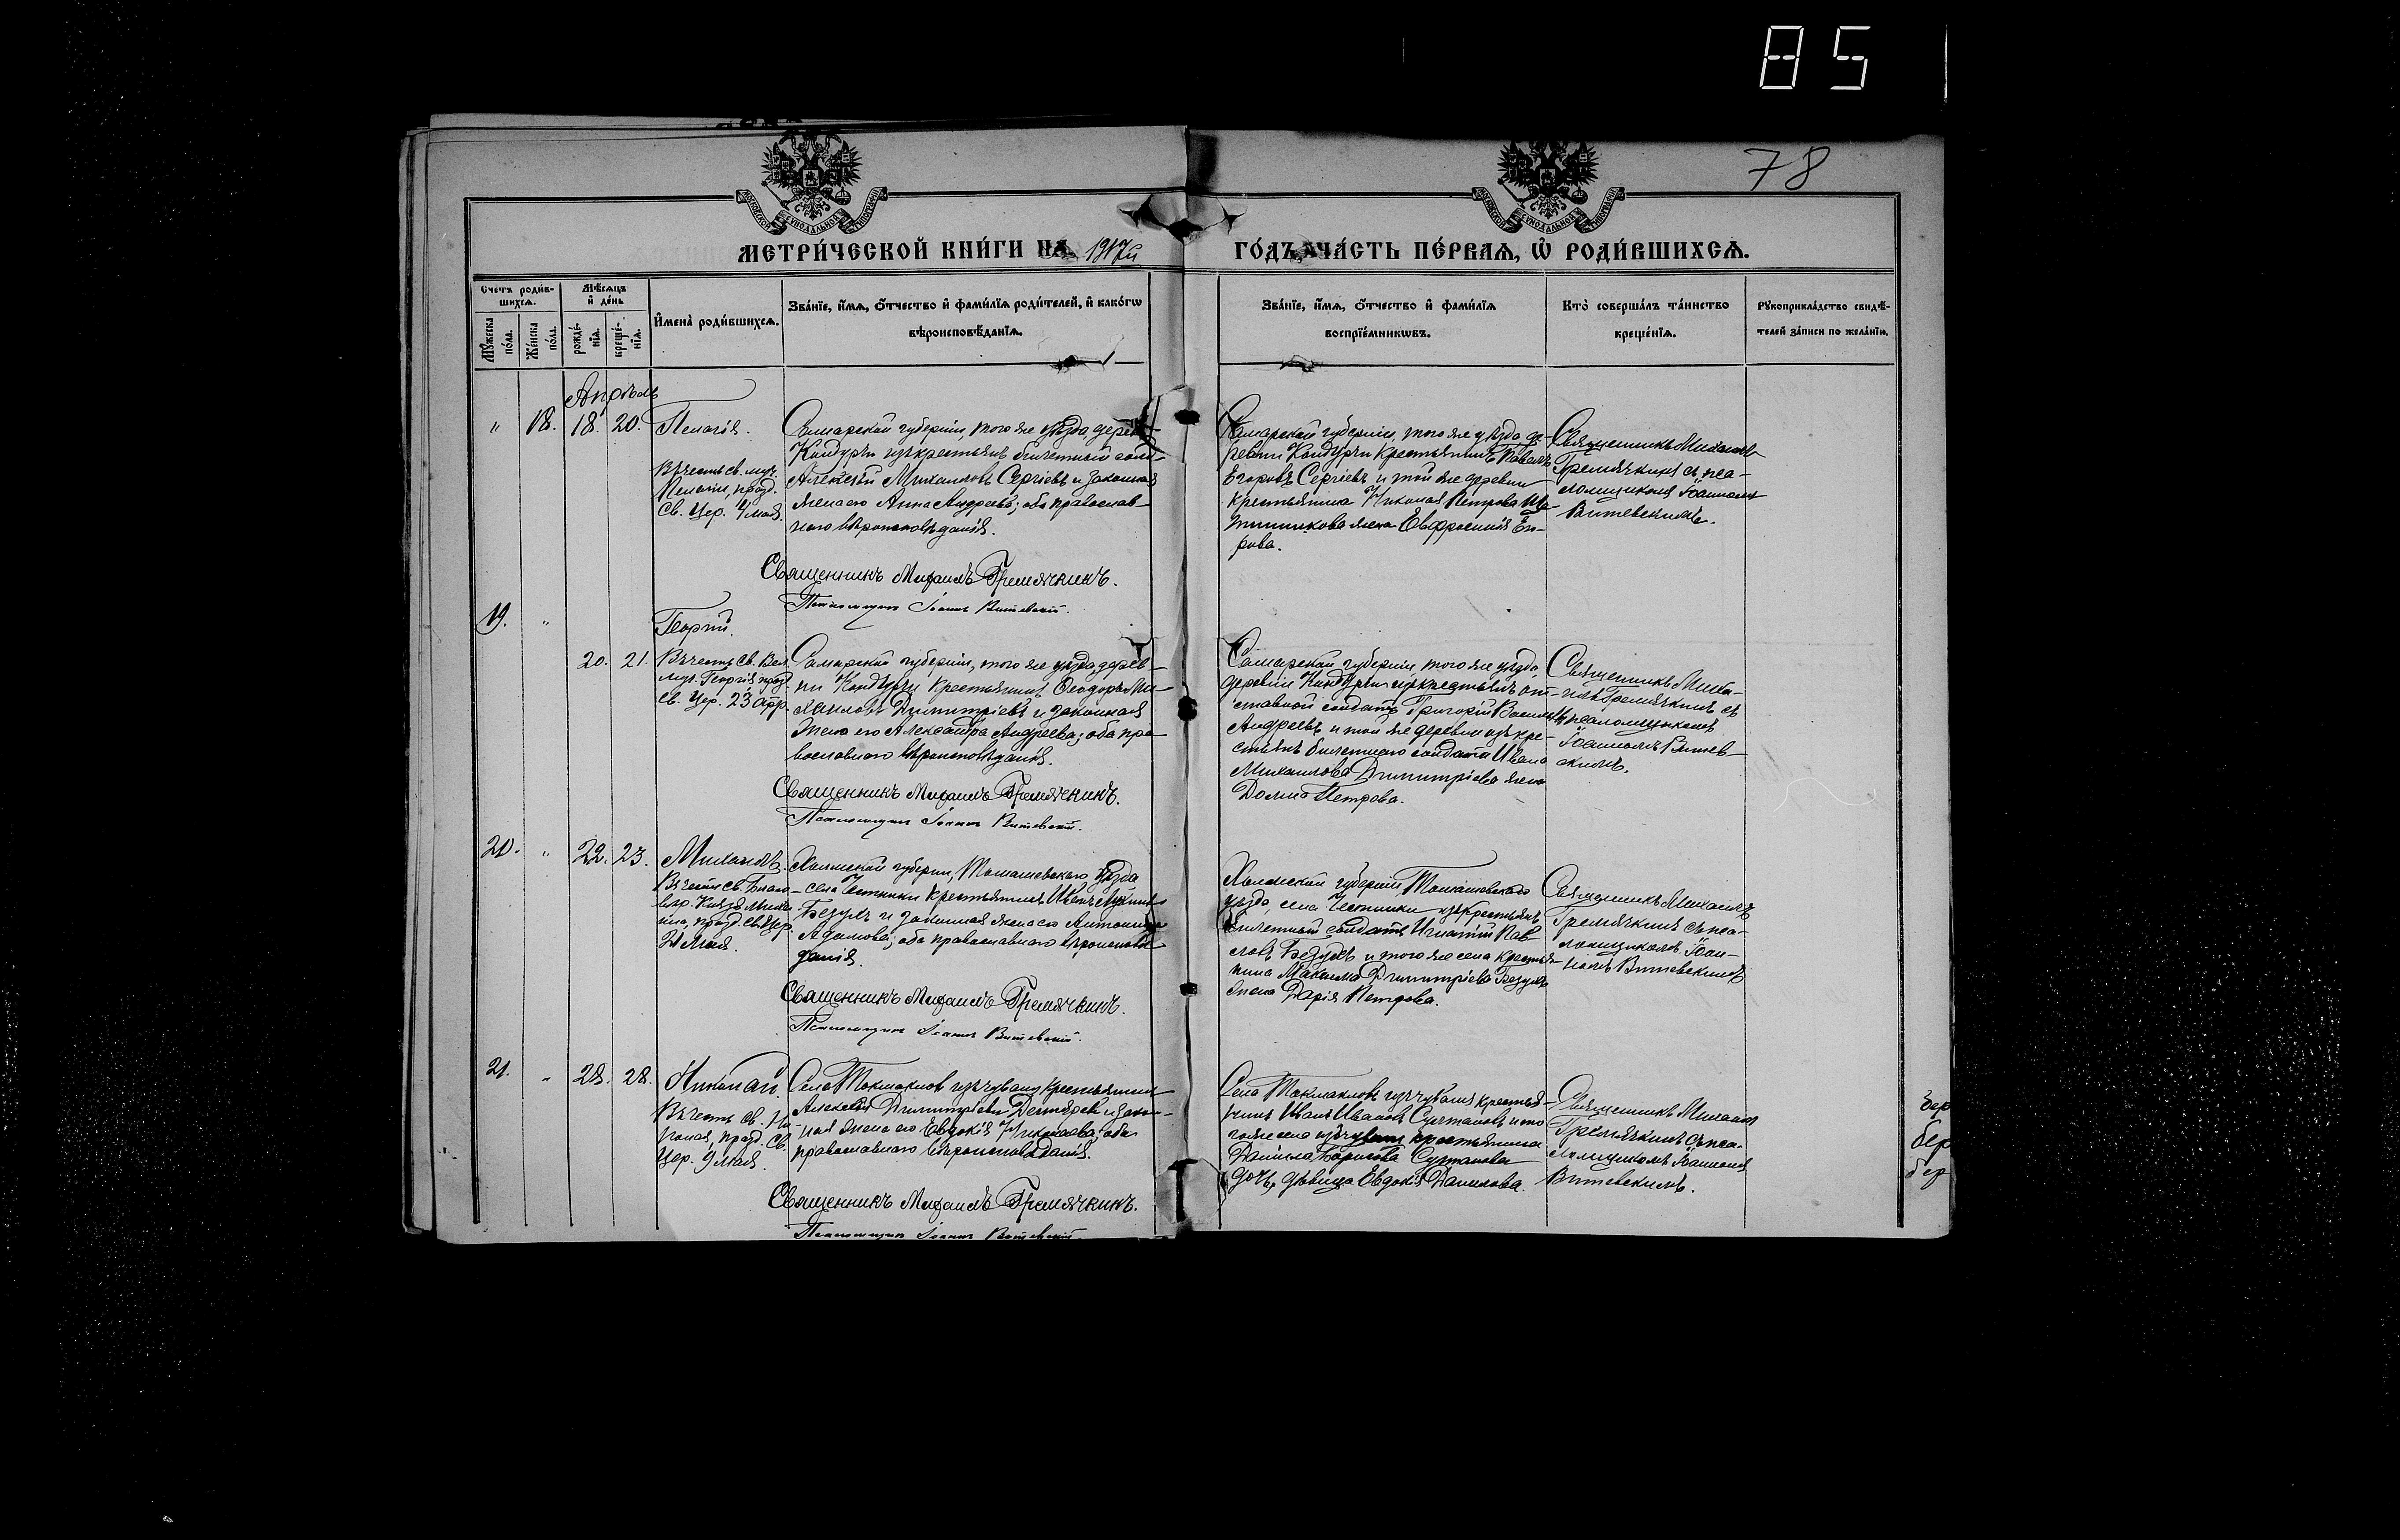 85
78
МОСКОВСКОЙ СѴНОДАЛЬНОЙ ТѴПОГРАФІИ
МОСКОВСКОЙ СѴНОДАЛЬНОЙ ТѴПОГРАФІИ
МЕТРИ́ЧЕСКОЙ КНИ́ГИ НА 1917й
ГО́ДЪ, ЧА́СТЬ ПЕ́РВАѦ, Ѡ҆ РОДИ́ВШИХСѦ.
Счетъ роди́в-
шихсѧ.
Мꙋ́жеска
по́ла.
Же́нска
по́ла.
Мѣ́сѧцъ
и҆ де́нь
рожде́-
нїѧ.
креще́-
нїѧ.
И҆мена̀ роди́вшихсѧ.
Зва́нїе, и҆́мѧ, ѻ҆́тчество и҆ фами́лїѧ роди́телей, и҆ како́гѡ
вѣроисповѣ́данїѧ.
Зва́нїе, и҆́мѧ, ѻ҆́тчество и҆ фами́лїѧ
воспрїе́мникѡвъ.
Кто̀ соверша́лъ та́инство
креще́нїѧ.
Рꙋкоприкла́дство свидѣ́-
телей за́писи по жела́нїю.
Апрѣль
" 18. 18. 20. Пелагія.
Въ честь св. муч.
Пелагіи, празд.
Св. Цер. 4 мая.
Самарской губерніи, того же уѣзда дерев-
Кондурчи изъ крестьянъ билетный солд-
Алексѣй Михаиловъ Сергіевъ и законная
жена его Анна Андреева; оба православ-
наго вѣроисповѣданія.
Священникъ Михаилъ Гремячкинъ.
Псаломщикъ Іоаннъ Витевскій.
Самарской губерніи, того же уѣзда де-
ревни Кондурчи крестьянинъ Павелъ
Егоровъ Сергіевъ и той же деревни
крестьянина Николая Петрова
жена Евфросинія Ег-
рова.
Священникъ Михаилъ
Гремячкинъ съ пса-
ломщикомъ Іоанномъ
Витевскимъ.
19. " Георгій.
20. 21. Въ честь св. Вел.
муч. Георгія, празд.
Св. Цер. 23 апр.
Самарской губерніи, того же уѣзда, дерев-
ни Кондурчи крестьянинъ Ѳеодоръ Ми-
хаиловъ Димитріевъ и законная
жена его Александра Андреева; оба пра-
вославнаго вѣроисповѣданія.
Священникъ Михаилъ Гремячкинъ.
Псаломщикъ Іоаннъ Витевскій.
Самарской губерніи, того же уѣзда,
деревни Кондурчи изъ крестьянъ от-
ставной солдатъ Григорій Васильевъ
Андреевъ и той же деревни изъ кре-
стьянъ билетнаго солдата Ивана
Михаилова Димитріева жена
Домна Петрова.
Священникъ Миха-
илъ Гремячкинъ съ
псаломщикомъ
Іоанномъ Витев-
скимъ.
20. " 22. 23. Михаилъ.
Въ честь св. Благо-
вѣр. Князя Михаи-
ла, празд. Св. Цер.
21 Мая.
Холмской губерніи, Томашевскаго уѣзда
села Честники крестьянинъ Иванъ
Бездухъ и законная жена его Антонина
Адамова; оба православнаго вѣроисповѣ-
данія.
Священникъ Михаилъ Гремячкинъ.
Псаломщикъ Іоаннъ Витевскій.
Холмской губерніи, Томашевскаго
уѣзда, села Честники изъ крестьянъ
билетный солдатъ Игнатій Пав-
ловъ Бездухъ и того же села крестья-
нина Максима Димитріева Бездухъ
жена Дарія Петрова.
Священникъ Михаилъ
Гремячкинъ съ пса-
ломщикомъ Іоан-
номъ Витевскимъ
21. " 28. 28. Николай.
Въ честь св. Ни-
колая, празд. Св.
Цер. 9 мая.
Села Токмаклов изъ чувашъ крестьянинъ
Алексѣй Димитріевъ Дегтяревъ и закон-
ная жена его Евдокія Николаева; оба
православнаго вѣроисповѣданія.
Священникъ Михаилъ Гремячкинъ.
Псаломщикъ Іоаннъ Витевскій
Села Токмаклов изъ чувашъ крестья-
нинъ Иванъ Ивановъ Султановъ и то-
го же села изъ чувашъ крестьянина
Даніила Борисова Султанова
дочь, дѣвица Евдокія Данилова.
Священникъ Михаилъ
Гремячкинъ съ пса-
ломщикомъ Іоанномъ
Витевскимъ.
бер
бер